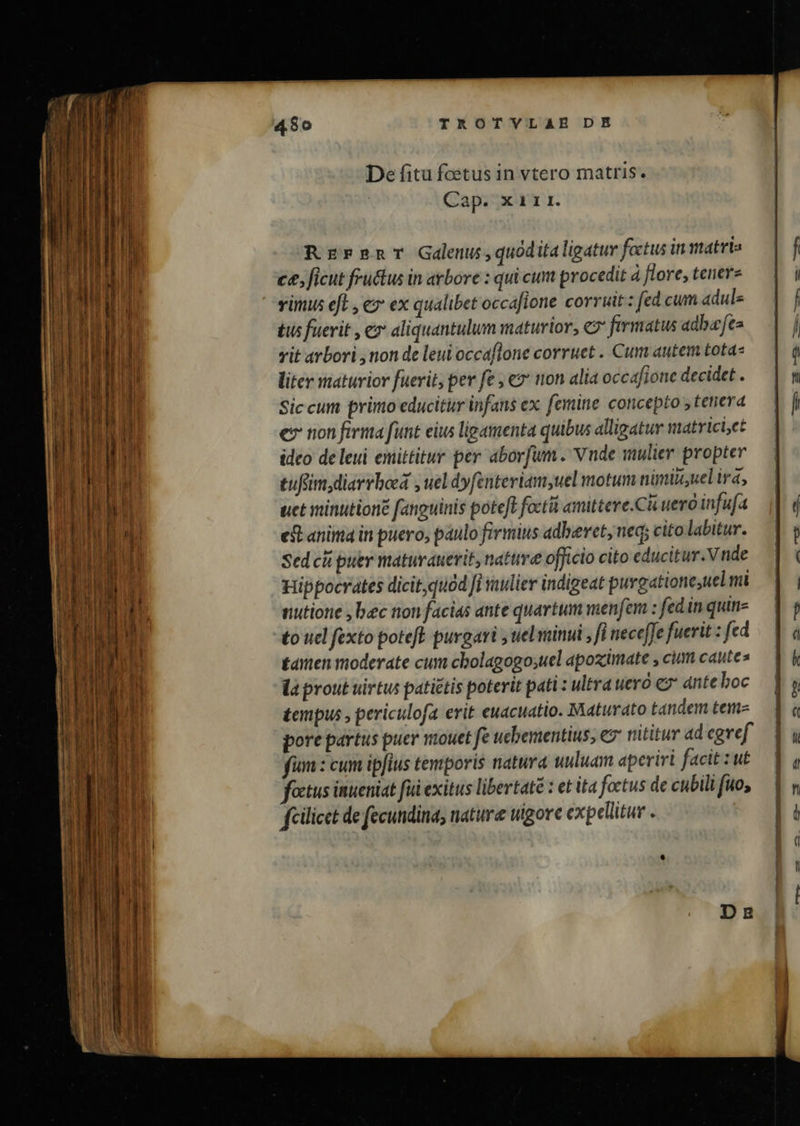 480 TROTVLAE DE
De situ fœtus in vtero matris.
Cap. XIII.
REFERT Galenus, quòd ita ligatur fœtus in matri⸗
ce, sicut fructus in arbore : qui cum procedit à flore, tener⸗
rimus est, & ex qualibet occasione corruit : sed cum adul⸗
tus fuerit, & aliquantulum maturior, & firmatus adhæse⸗
rit arbori, non de leui occasione corruet. Cum autem tota⸗
liter maturior fuerit, per se, & non alia occasione decidet.
Sic cum primo educitur infans ex semine concepto, tenera
& non firma sunt eius ligamenta quibus alligatur matrici,et
ideo de leui emittitur per aborsum. Vnde mulier propter
tussim,diarrhœã, uel dysenteriam,uel motum nimiũ,uel irã,
uel minutionẽ sanguinis potest fœtũ amittere.Cũ uerò infusa
est anima in puero, paulo firmius adhæret, neq; cito labitur.
Sed cũ puer maturauerit, naturæ officio cito educitur.Vnde
Hippocrates dicit,quòd si mulier indigeat purgatione,uel mi
nutione, hæc non facias ante quartum mensem : sed in quin⸗
to uel sexto potest purgari, uel minui, si necesse fuerit : sed
tamen moderate cum cholagogo,uel apozimate, cum caute⸗
la prout uirtus patiẽtis poterit pati : ultra uerò & ante hoc
tempus, periculosa erit euacuatio. Maturato tandem tem⸗
pore partus puer mouet se uehementius, & nititur ad egres
sum : cum ipsius temporis natura uuluam aperiri facit : ut
fœtus inueniat sui exitus libertatẽ : et ita fœtus de cubili suo,
scilicet de secundina, naturæ uigore expellitur.
DE